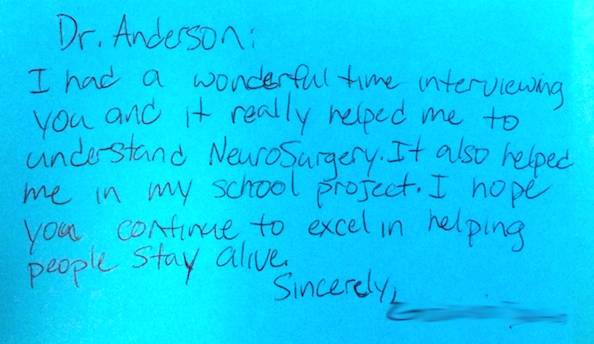 Dr. Anderson:
I had a wonderful time interviewing
you and it really helped me to
understand NeuroSurgery. It also helped
me in my school project. I hope
you continue to excel in helping
people stay alive.
Sincerely,